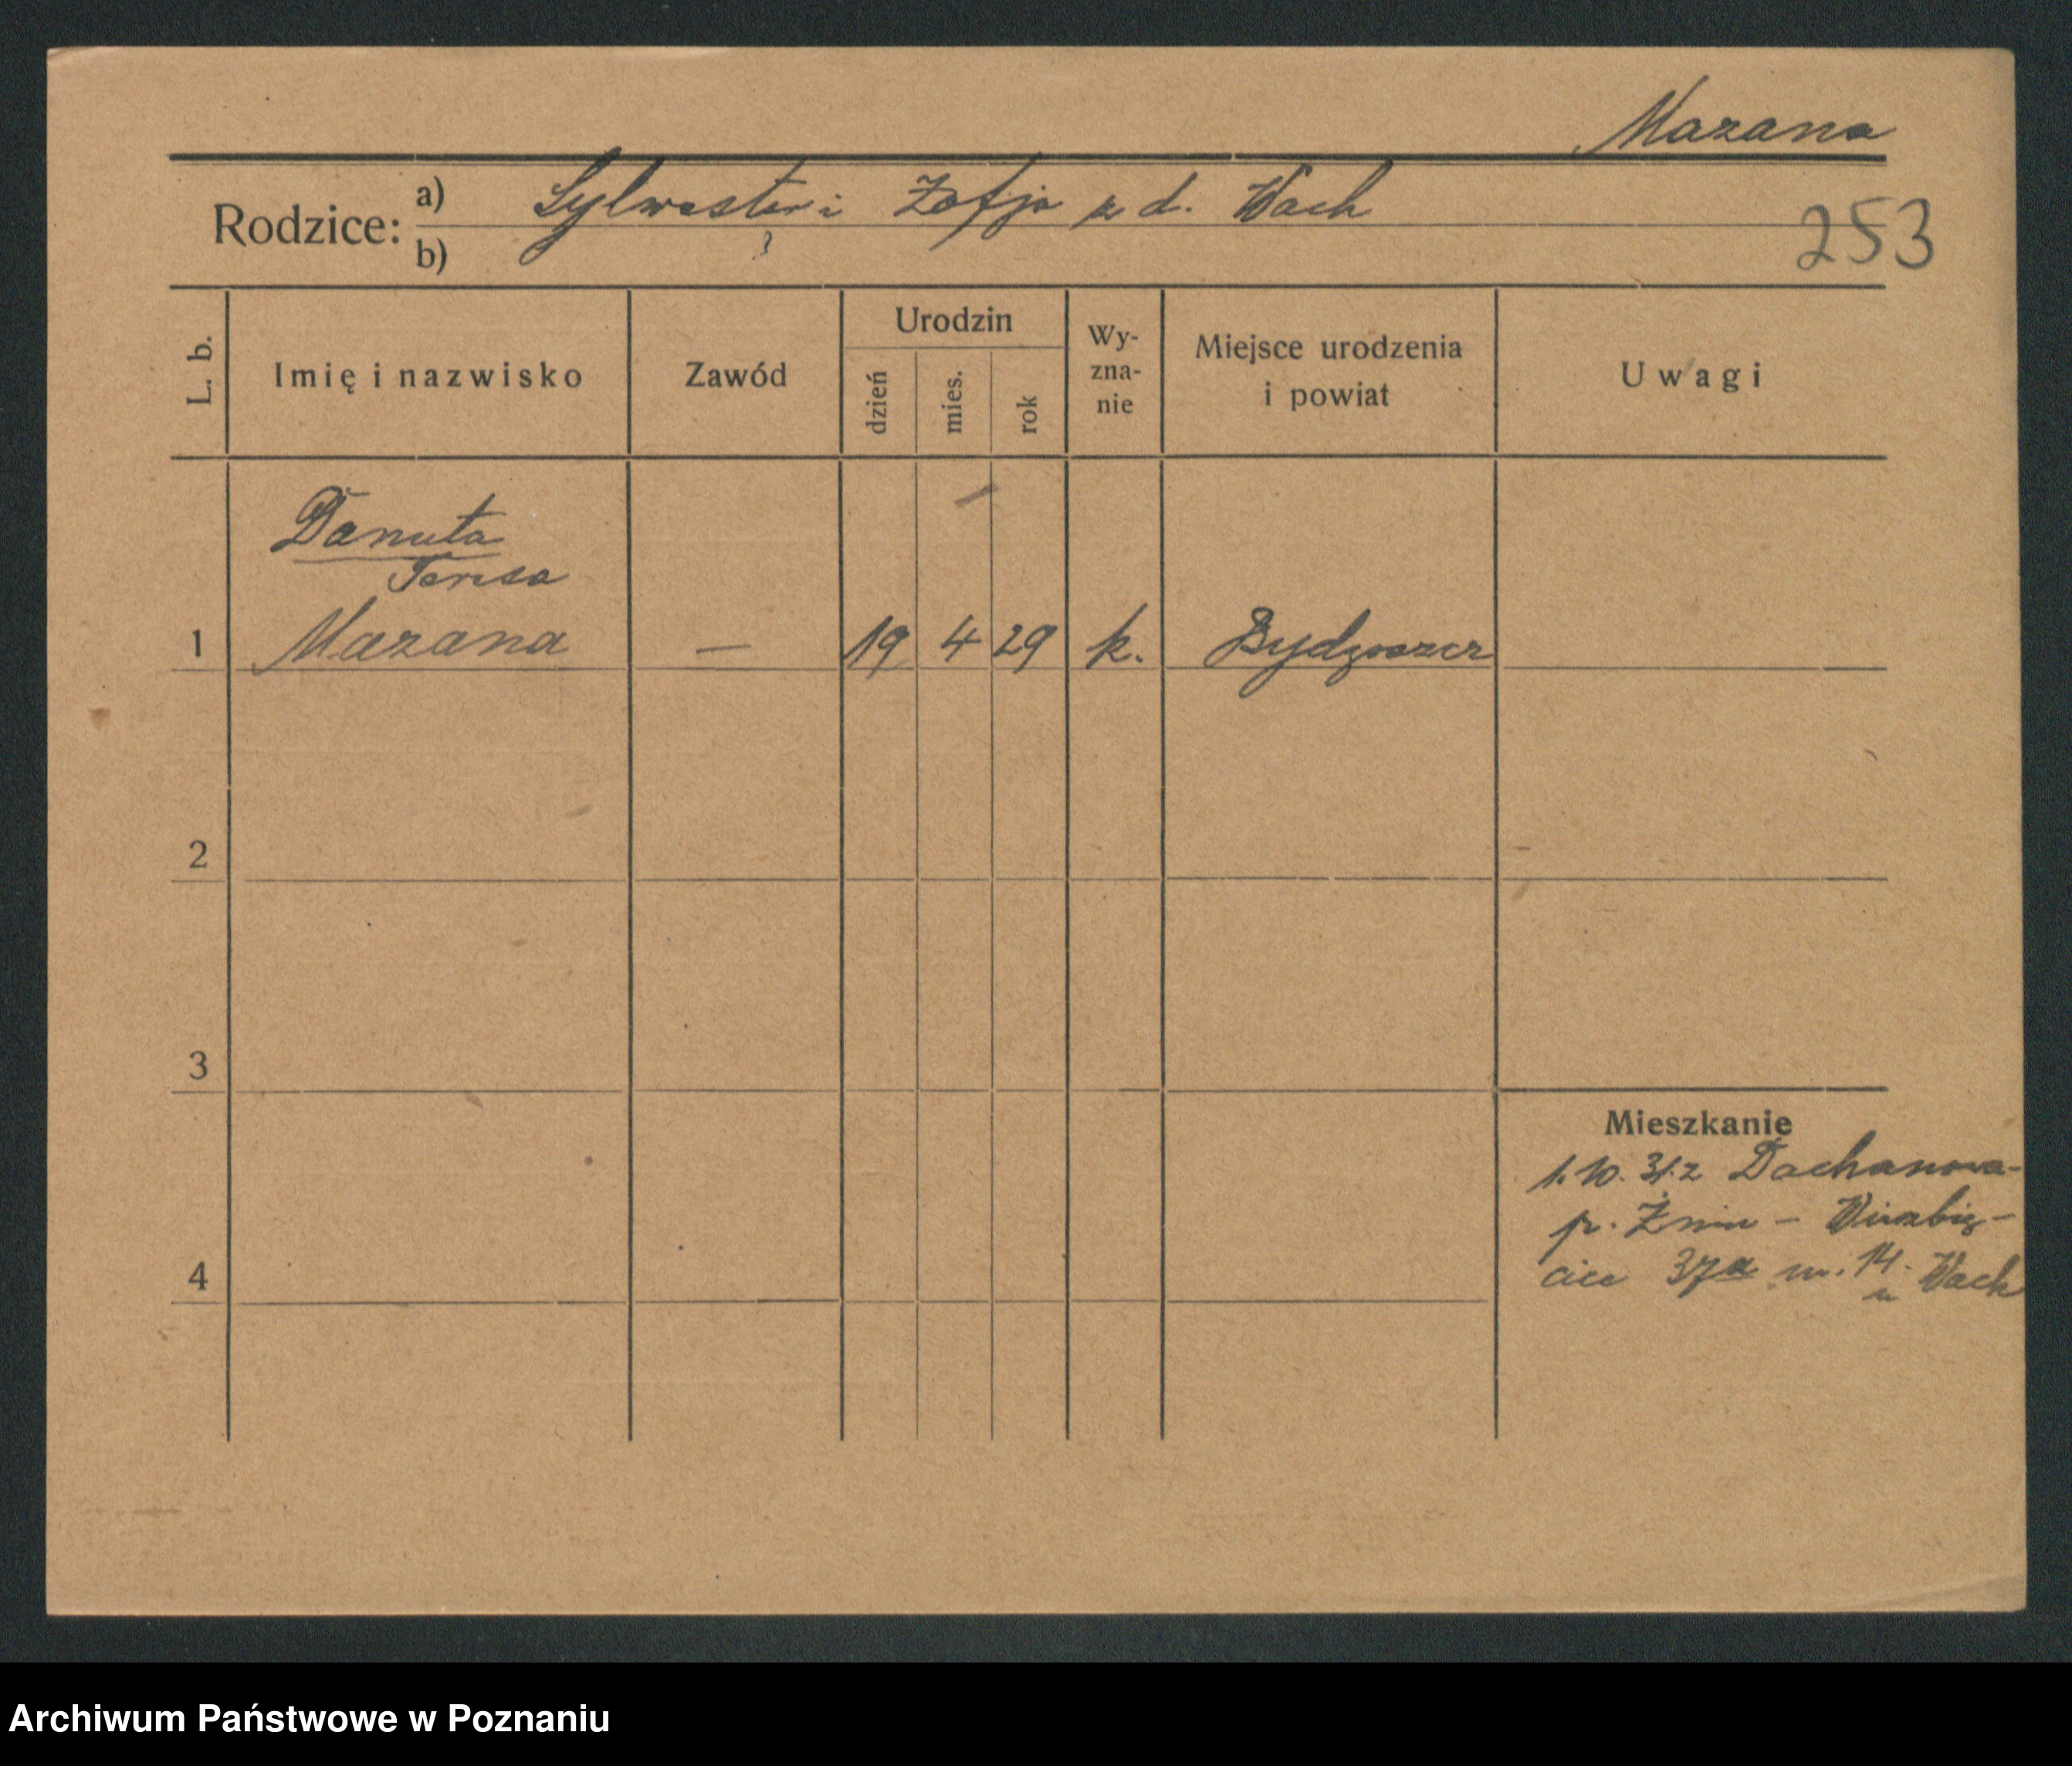 Mazana
Rodzice: a) Sylwester i Zofja z d. Wach
b)
253
L. b.
Imię i nazwisko
Zawód
Urodzin
dzień
mies.
rok
Wy-
zna-
nie
Miejsce urodzenia
i powiat
Uwagi
Danuta
Teresa
1 Mazana — 19 4 29 k. Bydgoszcz
2
3
4
Mieszkanie
1.10.31. z Dochanowa
p. Żnin - Wierzbię-
cice 37a m. 14.
u Wach
Archiwum Państwowe w Poznaniu